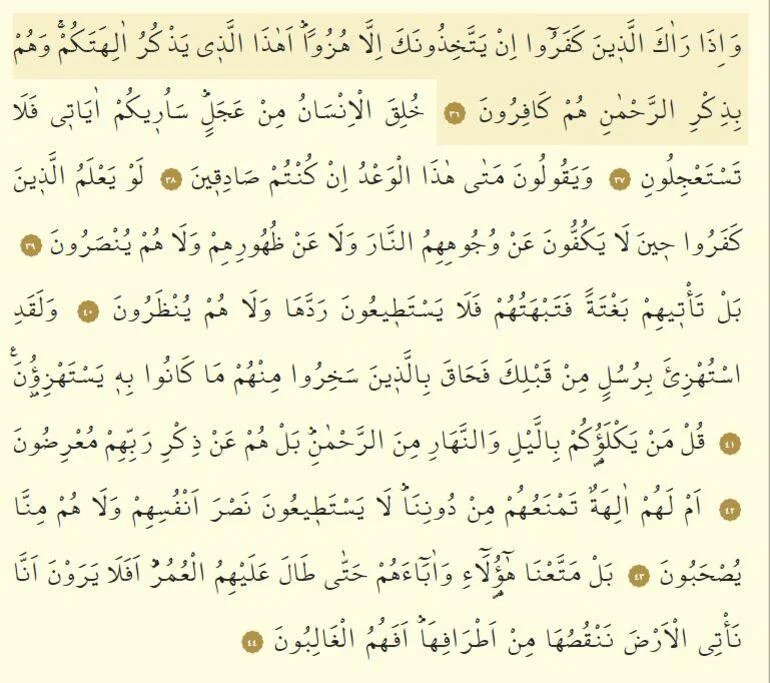 وَاِذَا رَاٰكَ الَّذ۪ينَ كَفَرُٓوا اِنْ يَتَّخِذُونَكَ اِلَّا هُزُوًاۜ اَهٰذَا الَّذ۪ي يَذْكُرُ اٰلِهَتَكُمْۚ وَهُمْ
بِذِكْرِ الرَّحْمٰنِ هُمْ كَافِرُونَ ٣٦ خُلِقَ الْاِنْسَانُ مِنْ عَجَلٍۜ سَاُر۪يكُمْ اٰيَات۪ي فَلَا
تَسْتَعْجِلُونِ ٣٧ وَيَقُولُونَ مَتٰى هٰذَا الْوَعْدُ اِنْ كُنْتُمْ صَادِق۪ينَ ٣٨ لَوْ يَعْلَمُ الَّذ۪ينَ
كَفَرُوا ح۪ينَ لَا يَكُفُّونَ عَنْ وُجُوهِهِمُ النَّارَ وَلَا عَنْ ظُهُورِهِمْ وَلَا هُمْ يُنْصَرُونَ ٣٩
بَلْ تَأْت۪يهِمْ بَغْتَةً فَتَبْهَتُهُمْ فَلَا يَسْتَط۪يعُونَ رَدَّهَا وَلَا هُمْ يُنْظَرُونَ ٤٠ وَلَقَدِ
اسْتُهْزِئَ بِرُسُلٍ مِنْ قَبْلِكَ فَحَاقَ بِالَّذ۪ينَ سَخِرُوا مِنْهُمْ مَا كَانُوا بِه۪ يَسْتَهْزِؤُ۫نَ۟
٤١ قُلْ مَنْ يَكْلَؤُ۬كُمْ بِالَّيْلِ وَالنَّهَارِ مِنَ الرَّحْمٰنِۜ بَلْ هُمْ عَنْ ذِكْرِ رَبِّهِمْ مُعْرِضُونَ
٤٢ اَمْ لَهُمْ اٰلِهَةٌ تَمْنَعُهُمْ مِنْ دُونِنَاۜ لَا يَسْتَط۪يعُونَ نَصْرَ اَنْفُسِهِمْ وَلَا هُمْ مِنَّا
يُصْحَبُونَ ٤٣ بَلْ مَتَّعْنَا هٰٓؤُ۬لَٓاءِ وَاٰبَٓاءَهُمْ حَتّٰى طَالَ عَلَيْهِمُ الْعُمُرُۜ اَفَلَا يَرَوْنَ اَنَّا
نَأْتِي الْاَرْضَ نَنْقُصُهَا مِنْ اَطْرَافِهَاۜ اَفَهُمُ الْغَالِبُونَ ٤٤